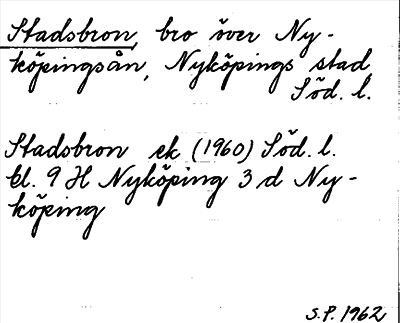 Stadsbron, bro över Ny-
köpingsån, Nyköpings stad
Söd. l.
Stadsbron ek (1960) Söd. l.
bl. 9 H Nyköping 3 d Ny-
köping
S.P. 1962